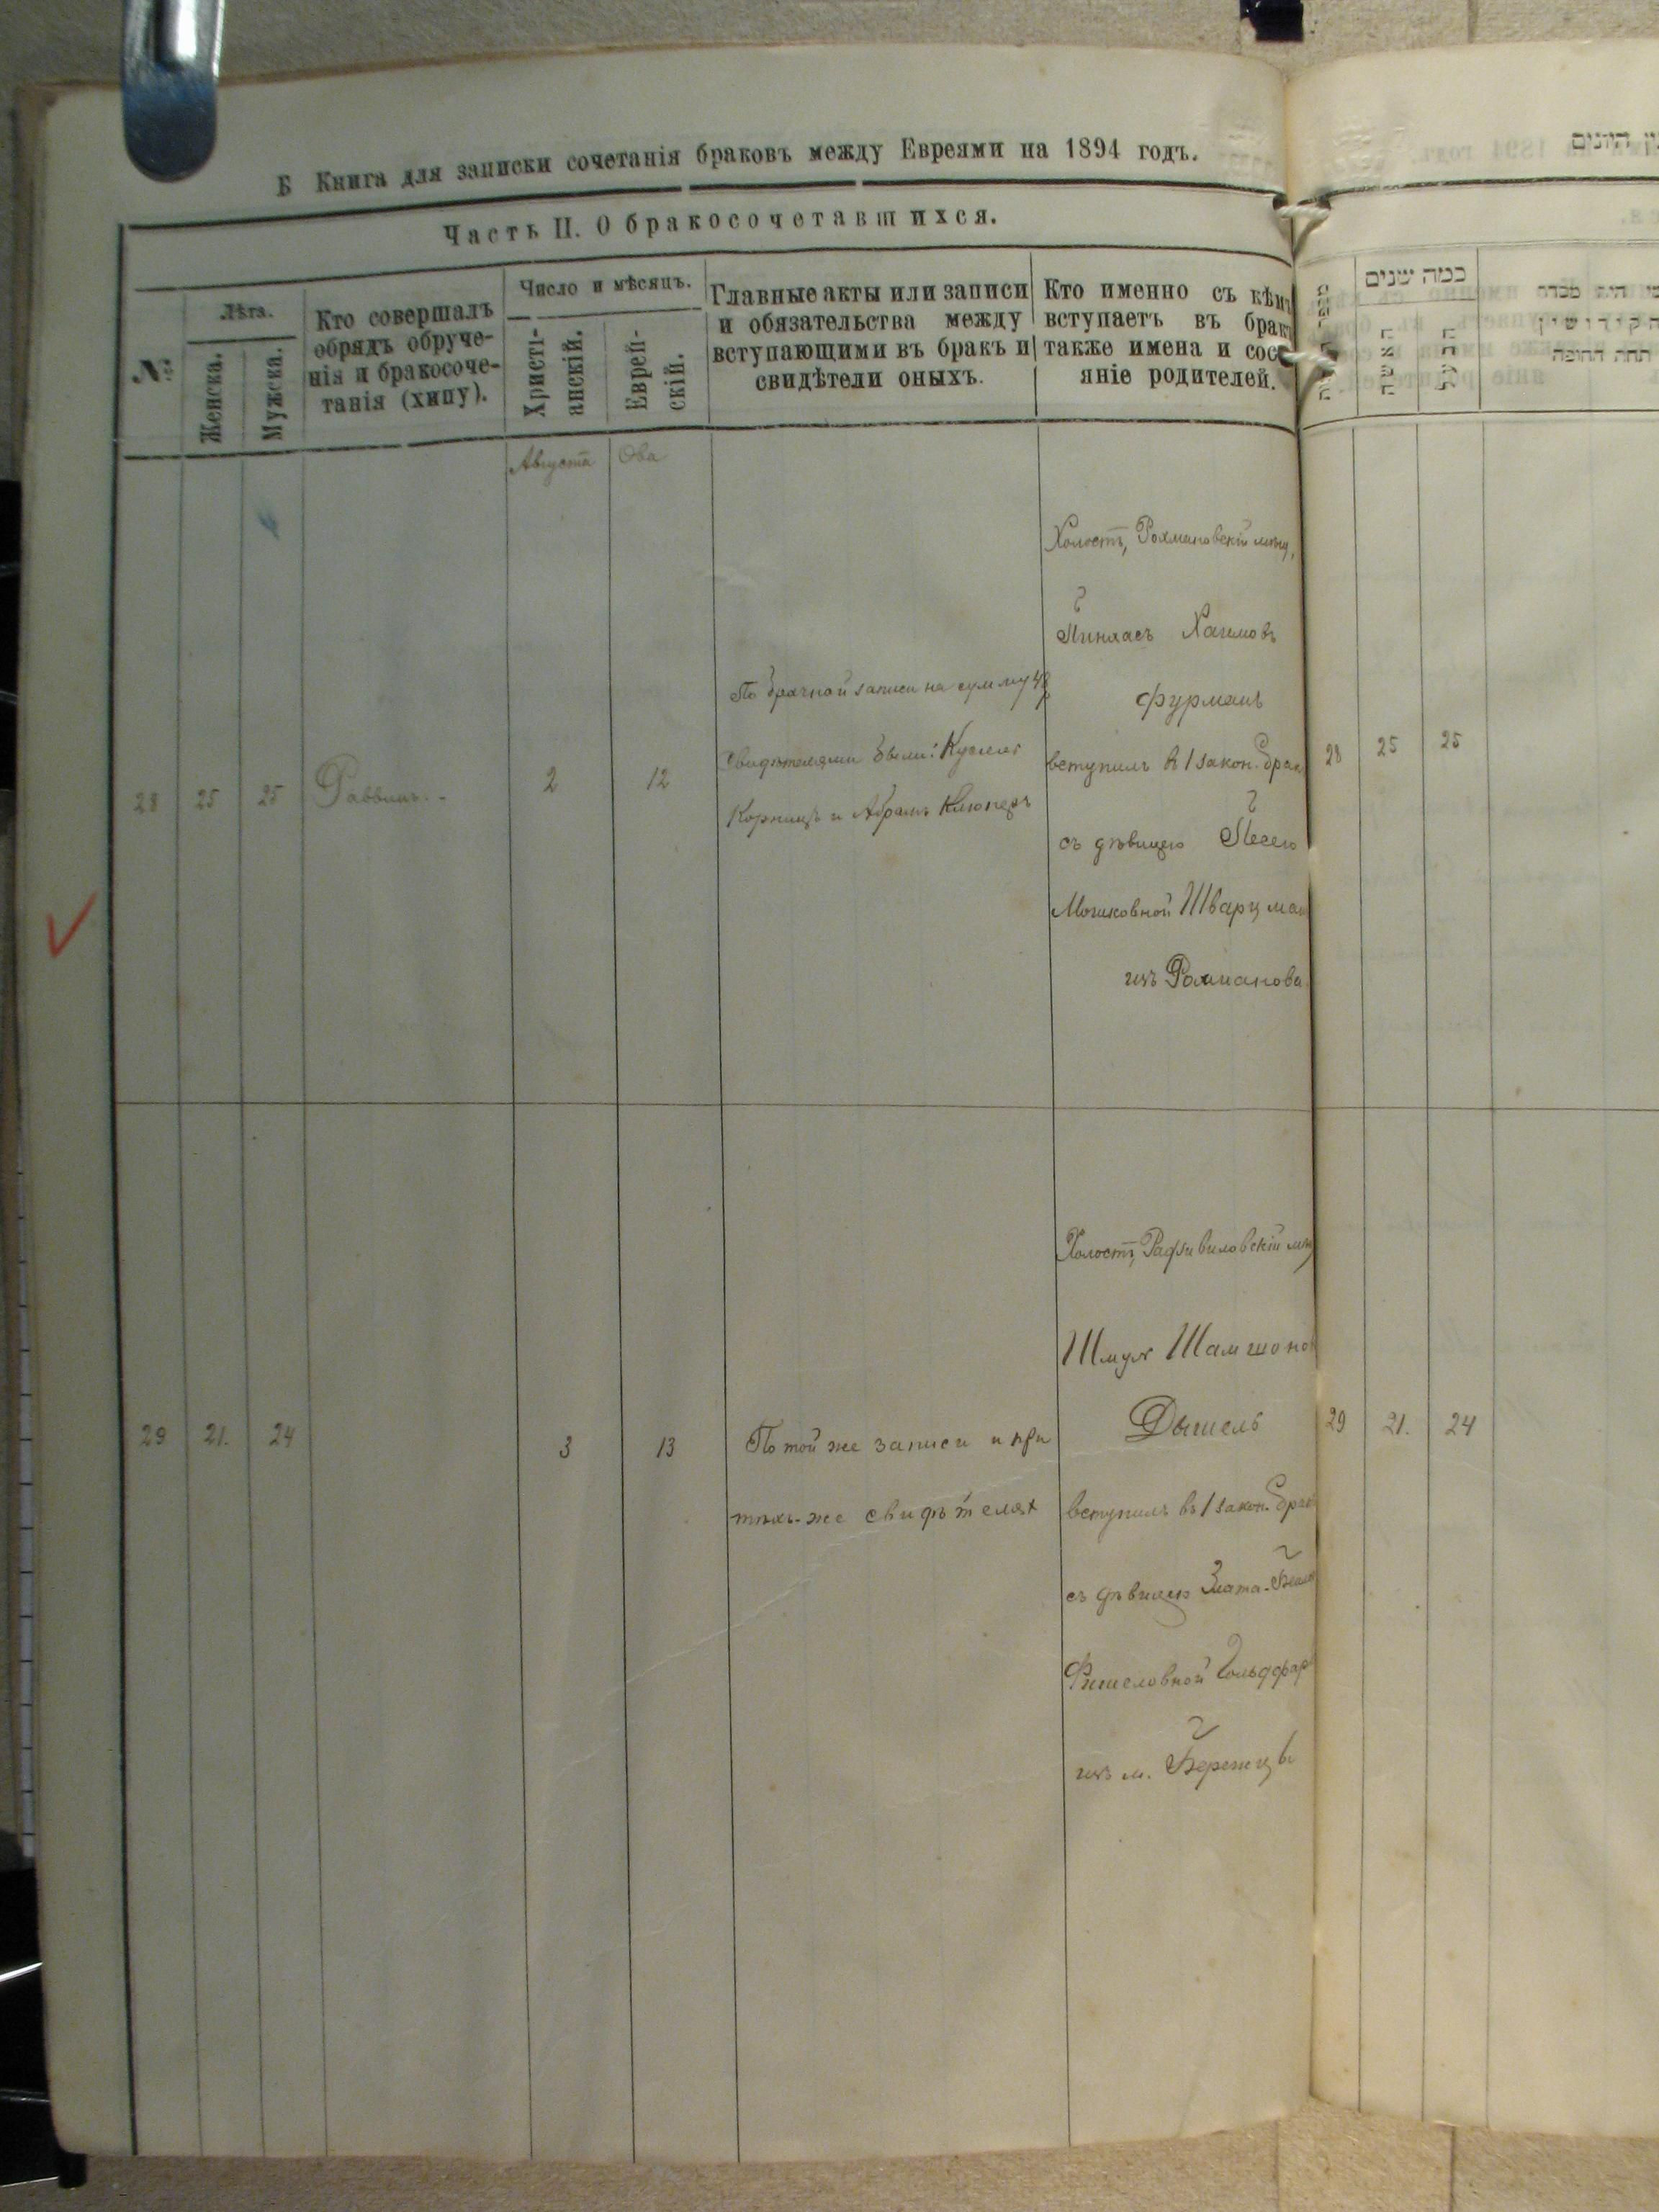 Б Книга для записки сочетанія браковъ между Евреями на 1894 годъ.
Часть II. О бракосочетавшихся.
№
Лѣта.
Женска.
Мужска.
Кто совершалъ
обрядъ обруче-
нія и бракосоче-
танія (хипу).
Число и мѣсяцъ.
Христі-
анскій.
Еврей-
скій.
Главные акты или записи
и обязательства между
вступающими въ бракъ и
свидѣтели оныхъ.
Кто именно съ кѣмъ
вступаетъ въ брак
также имена и сос
яніе родителей.
כמה שנים
האשה
הבעל
תחת החופה
Августа
Ова
28 25 25 Раввинъ. - 2 12
По брачной записи на сумму 48
Свидѣтелями были:
и Абрамъ
Холостъ, Рохмановскій мѣщ,
Пинхасъ Хаимовъ
Фурманъ
вступилъ въ 1 закон. брак
съ дѣвицею Песею
Мошковной Шварцман
изъ Рохманова
28 25 25
29 21. 24 3 13
По той же записи и при
тѣхъ-же свидѣтелях
Холостъ, Радзивиловскій мѣщ
Шмуль Шамшонов
Дышель
вступилъ въ 1 закон. брак
съ дѣвицею Злата-
Фишеловной Гольдфарб
изъ м. Бережцы
29 21. 24